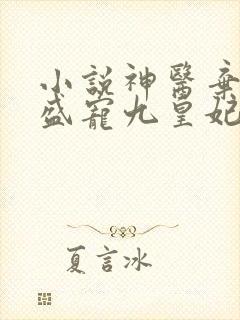 小說神醫棄
盛寵九皇妃
夏言冰